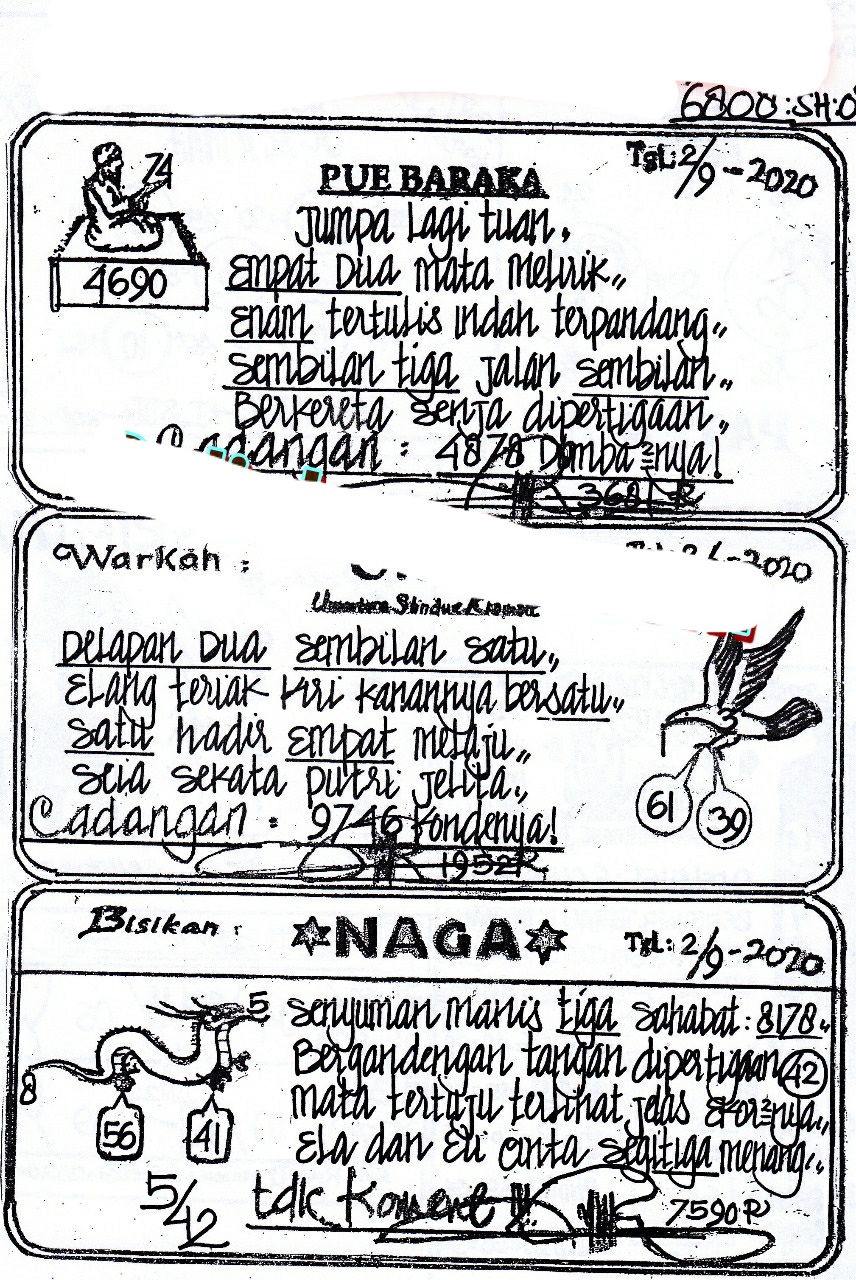 6800:SH:0
74
4690
PUE BARAKA
Tgl: 2/9-2020
Jumpa Lagi tuan,
Empat Dua mata melirik,,
Enam tertulis indah terpandang,,
Sembilan tiga jalan sembilan,,
Berkereta senja dipertigaan,,
Cadangan : 4878 Domba²nya!
3681 R
Warkah :
-2020
Delapan Dua Sembilan Satu,,
Elang teriak kiri kanannya bersatu,,
Satu hadir empat melaju,,
Seia sekata putri jelita.,
61
39
Cadangan : 9746 Kondenya!
1952R
Bisikan :
NAGA
Tgl: 2/9-2020
5
8
56
41
Senyuman manis tiga sahabat: 8178,,
Bergandengan tangan dipertigaan 42
Mata tertuju terlihat jelas Ekor²nya,,
Ela dan Eli cinta segitiga menang,,
5/42
tdk
7590 R